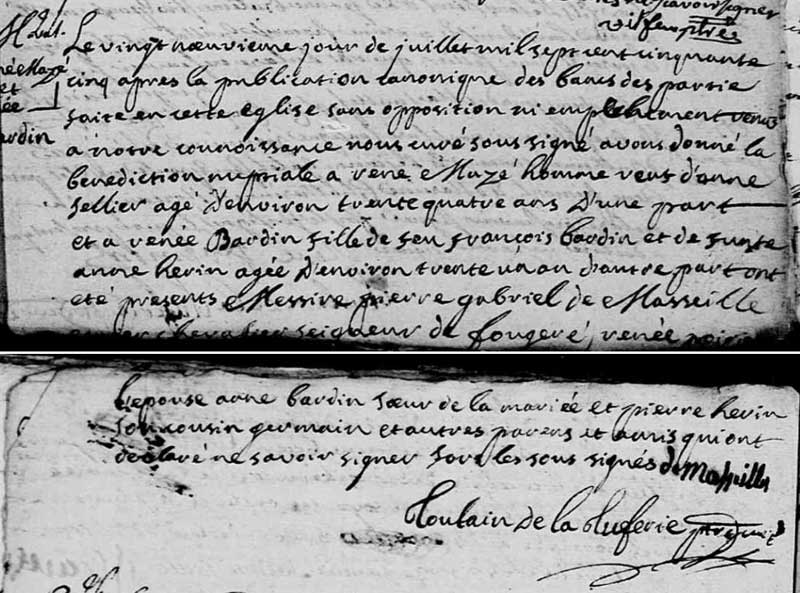 M Dat.
née Mazé
et
ée
ardin
Le vingt nœuvienne jour de juillet mil sept cent cinquante
cinq apres la publication canonique des bancs des partie
faite en cette eglise sans opposition ni empechement venus
a notre connoissance nous curé sous signé avons donné la
benediction nuptiale a rené Mazé homme veuf d'anne
sellier agé d'environ trente quatre ans d'une part
et a renée Bardin fille de feu françois bardin et de funte
anne herin agée d'environ trente un an d'autre part ont
eté presents Messire pierre gabriel de Masseille
chevalier seigneur de fougeré, renée
l'epouse anne bardin sœur de la mariée et pierre herin
son cousin germain et autres parens et amis qui ont
declaré ne savoir signer fors les sous signés de Masseille
Toutain de la